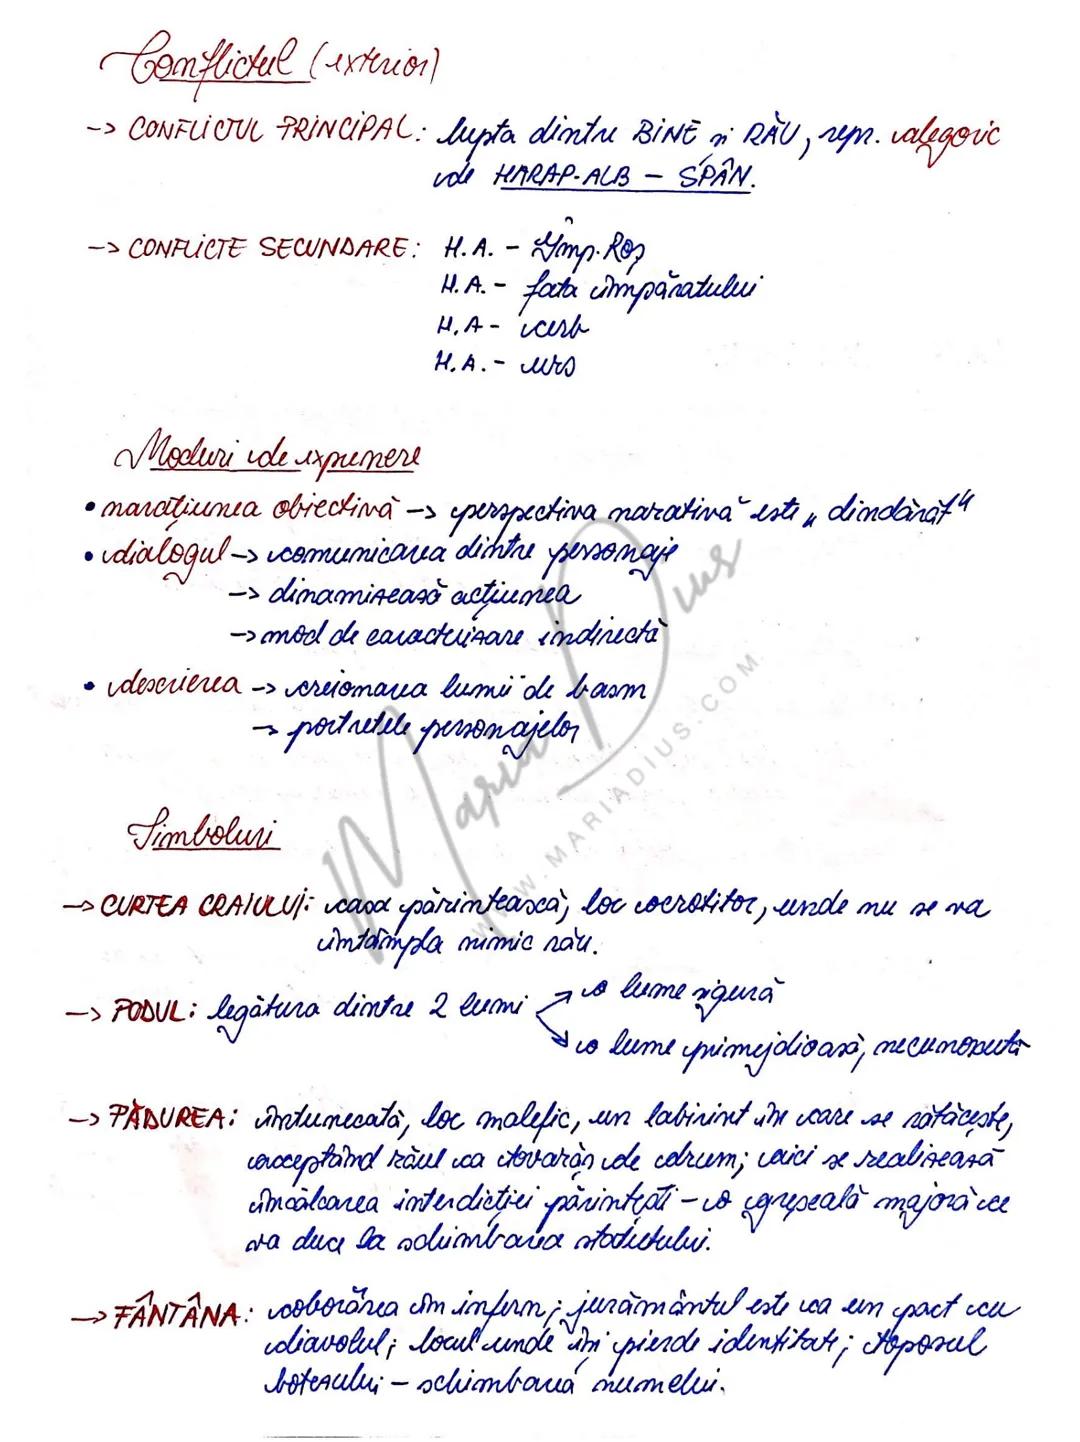 Conflictul (exterior)
-> CONFLICTUL PRINCIPAL: lupta dintre BINE și RĂU, repr. alegoric
de HARAP-ALB - SPÂN.
-> CONFLICTE SECUNDARE: H.A. - Împ. Roș
H.A. - fata împăratului
H.A - cerb
H.A. - urs
Moduri de expunere
• narațiunea obiectivă -> perspectiva narativă este „dindărăt"
• dialogul -> comunicarea dintre personaje
-> dinamizează acțiunea
-> mod de caracterizare indirectă
• descrierea -> creionarea lumii de basm
-> portretele personajelor
Simboluri
-> CURTEA CRAIULUI: casa părintească, loc ocrotitor, unde nu se va
întâmpla nimic rău.
-> PODUL: legătura dintre 2 lumi
o lume sigură
o lume primejdioasă, necunoscută
-> PĂDUREA: întunecată, loc malefic, un labirint în care se rătăcește,
acceptând răul ca tovarăș de drum; aici se realizează
încălcarea interdicției părintești - o greșeală majoră ce
va duce la schimbarea statutului.
-> FÂNTÂNA: coborârea în infern; jurământul este ca un pact cu
diavolul; locul unde își pierde identitate; toposul
botezului - schimbarea numelui.
Maria Dius
WWW.MARIADIUS.COM